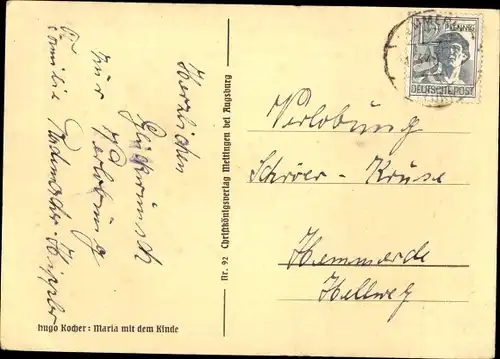 Herzlichen
Glückwunsch
zur
Verlobung
Familie
Hugo Kocher: Maria mit dem Kinde
Nr. 92 Christkönigsverlag Meitingen bei Augsburg
12 PFENNIG
DEUTSCHE POST
Verlobung
Schröer - Kruse
Hemmerde
Hellweg